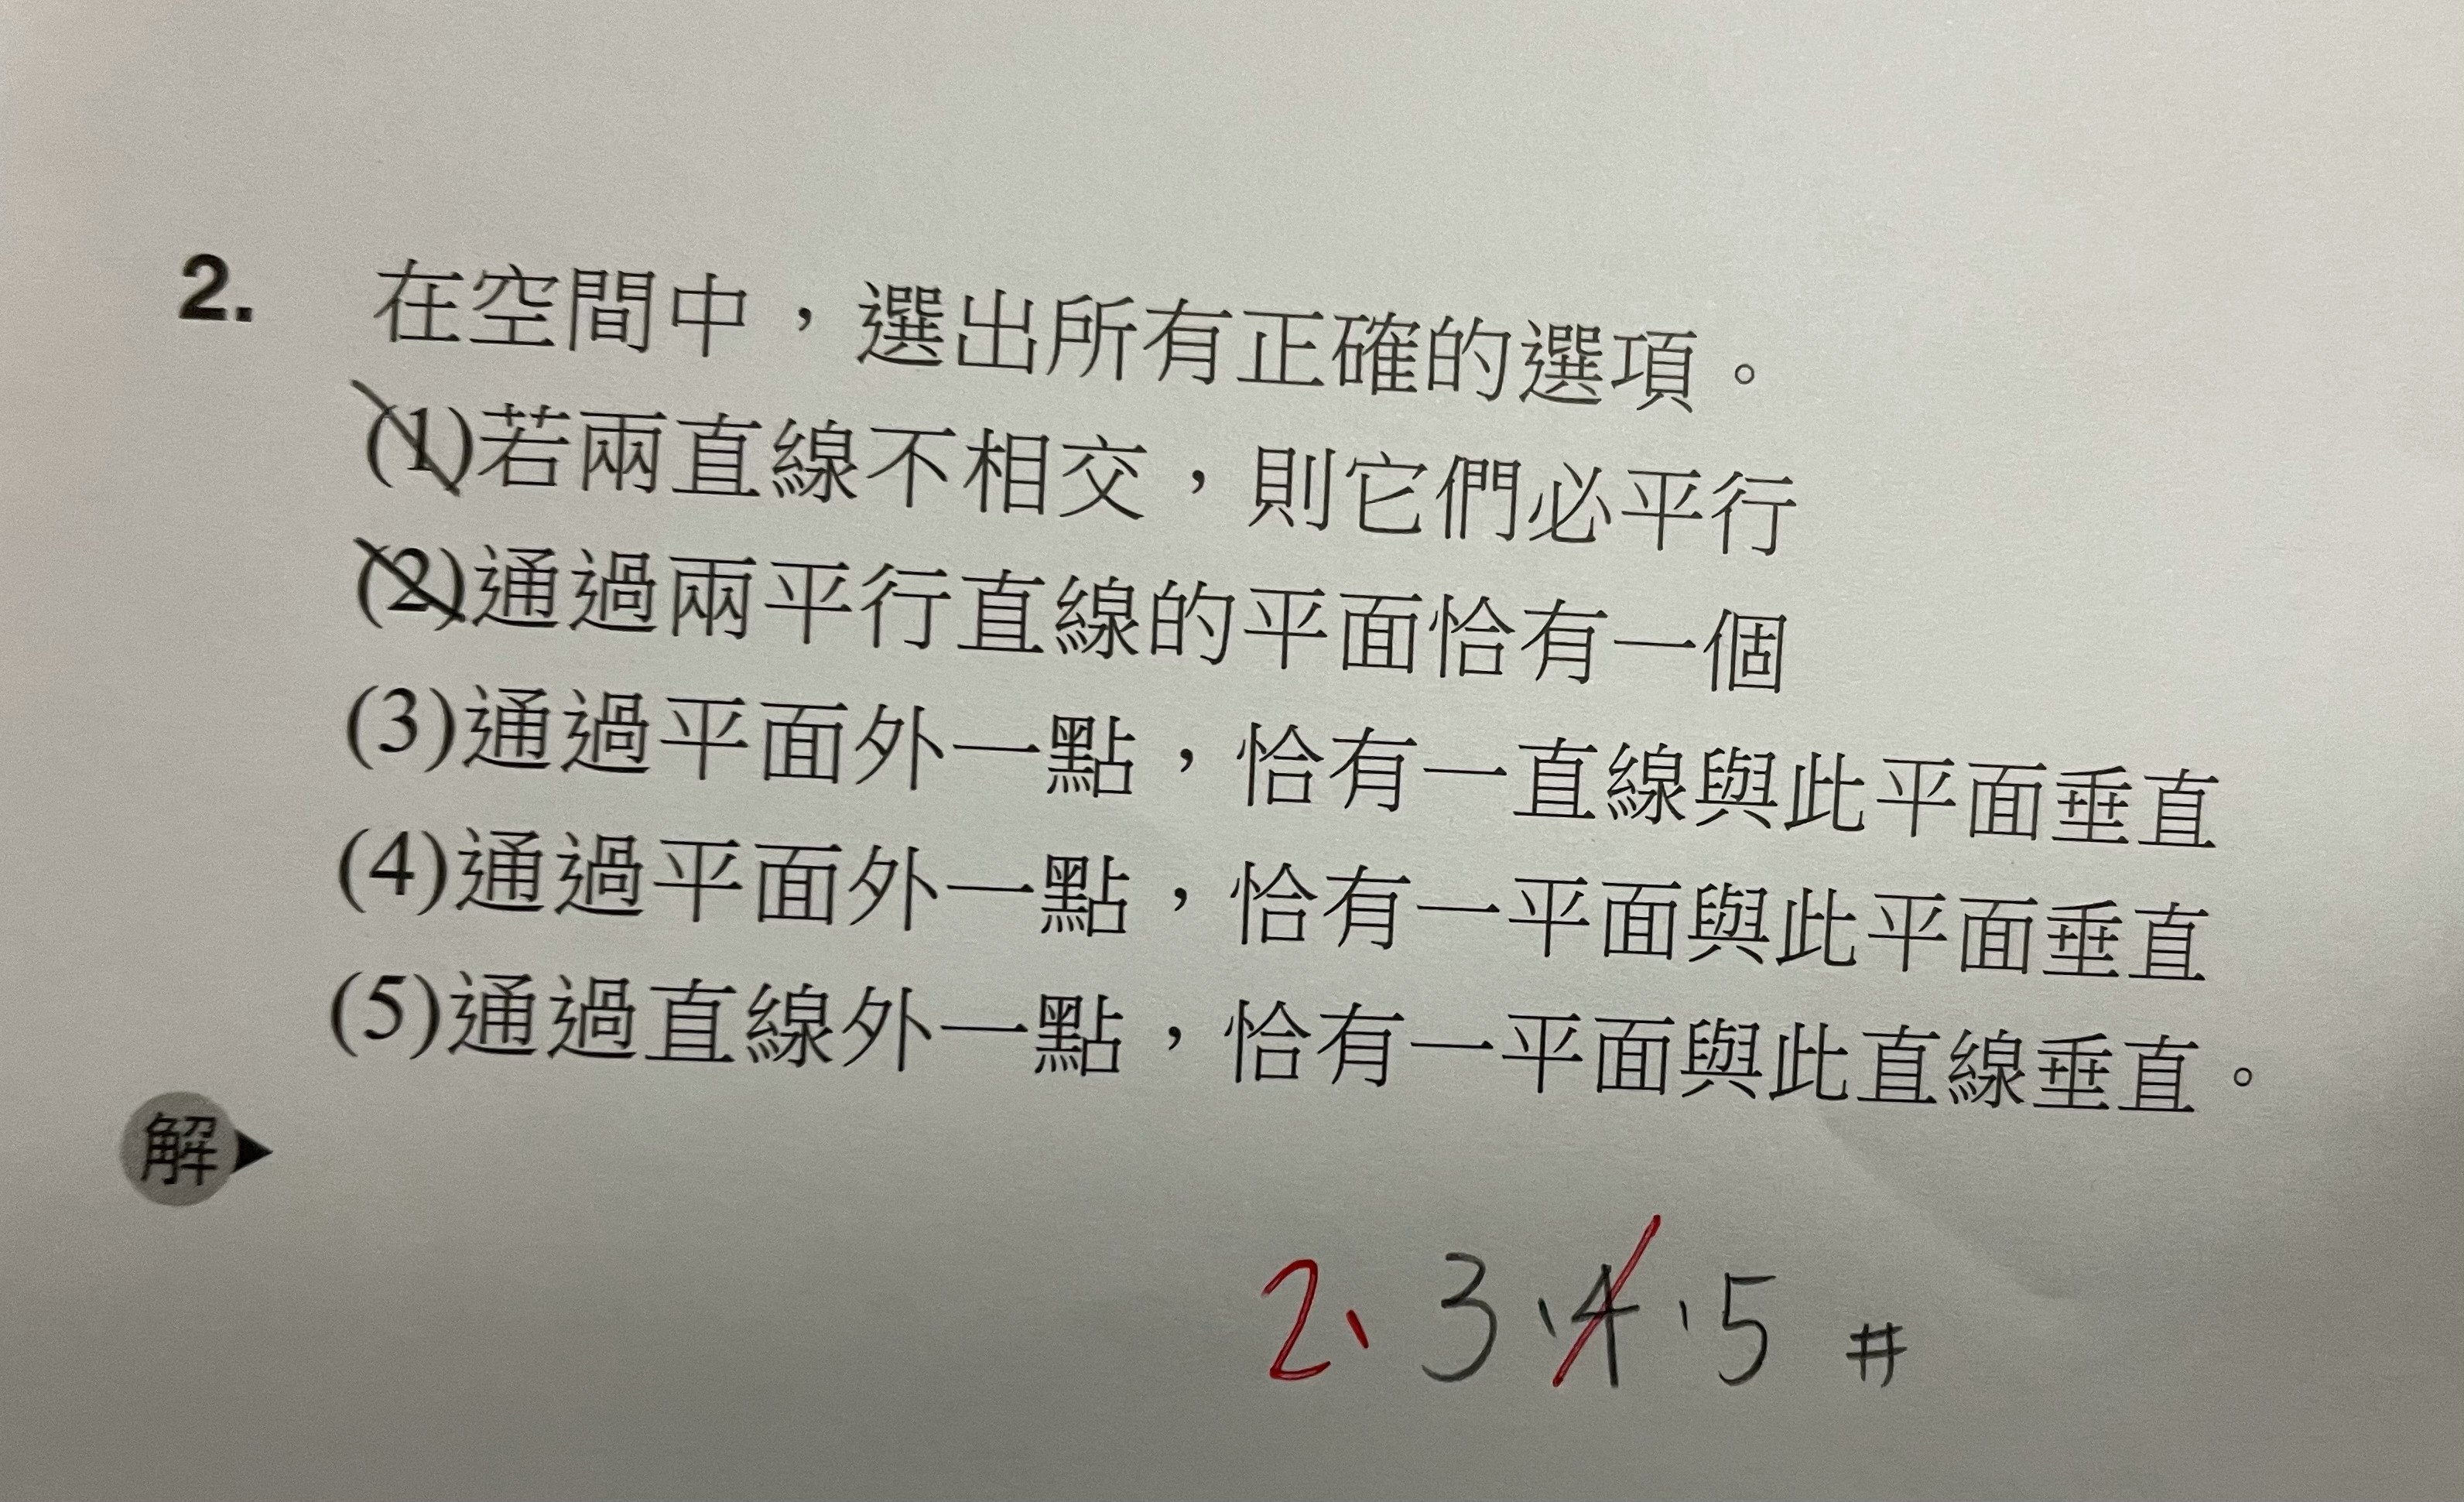 2. 在空間中，選出所有正確的選項。
(1)若兩直線不相交，則它們必平行
(2)通過兩平行直線的平面恰有一個
(3)通過平面外一點，恰有一直線與此平面垂直
(4)通過平面外一點，恰有一平面與此平面垂直
(5)通過直線外一點，恰有一平面與此直線垂直。
解
2、3、4、5 #